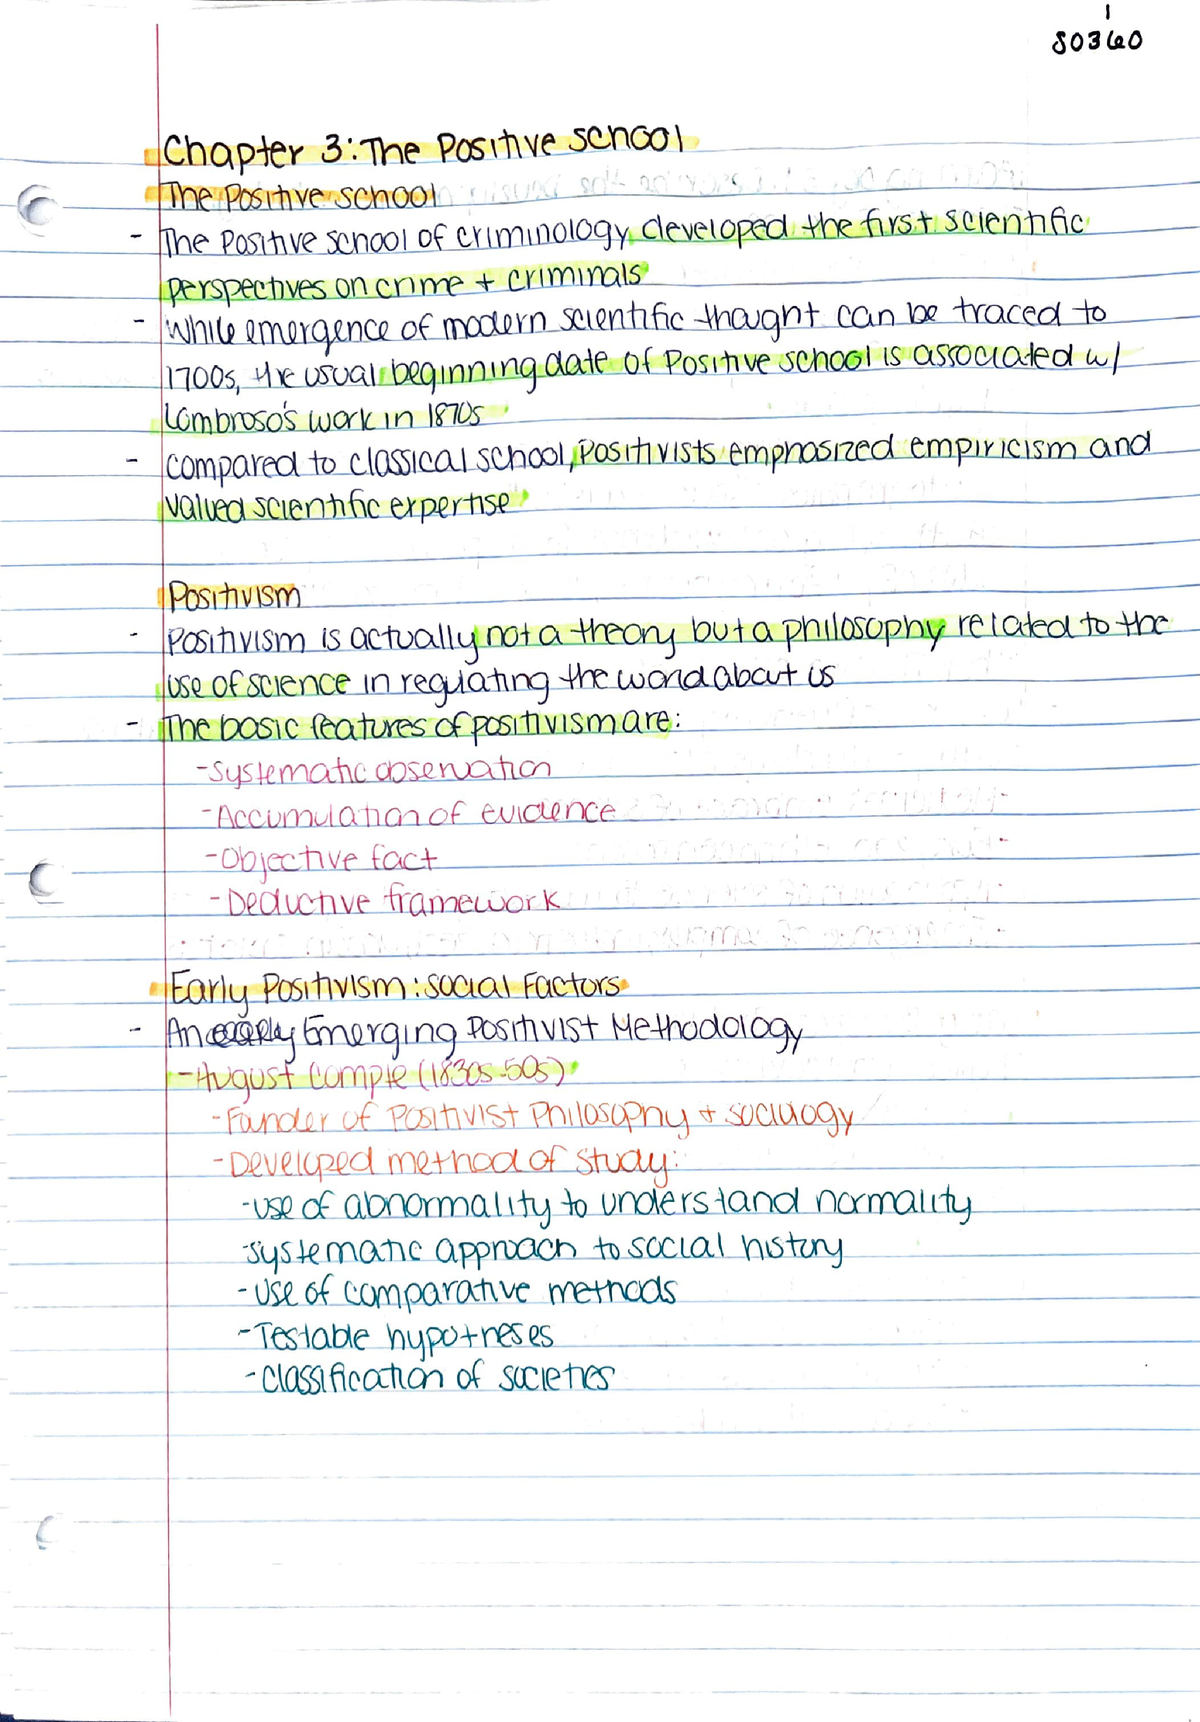 1
SO360
Chapter 3: The Positive school
The Positive school
- The Positive school of criminology developed the first scientific
perspectives on crime + criminals
- While emergence of modern scientific thought can be traced to
1700s, the usual beginning date of Positive school is associated w/
Lombroso's work in 1870s
- compared to classical school, Positivists emphasized empiricism and
valued scientific expertise
Positivism
- Positivism is actually not a theory but a philosophy related to the
use of science in regulating the world about us
- The basic features of positivism are:
- Systematic observation
- Accumulation of evidence
- Objective fact
- Deductive framework
Early Positivism: Social Factors
- An Emerging Positivist Methodology
- August Compte (1830s-50s)
- Founder of Positivist Philosophy + sociology
- Developed method of study:
- use of abnormality to understand normality
- systematic approach to social history
- Use of comparative methods
- Testable hypotheses
- Classification of societies